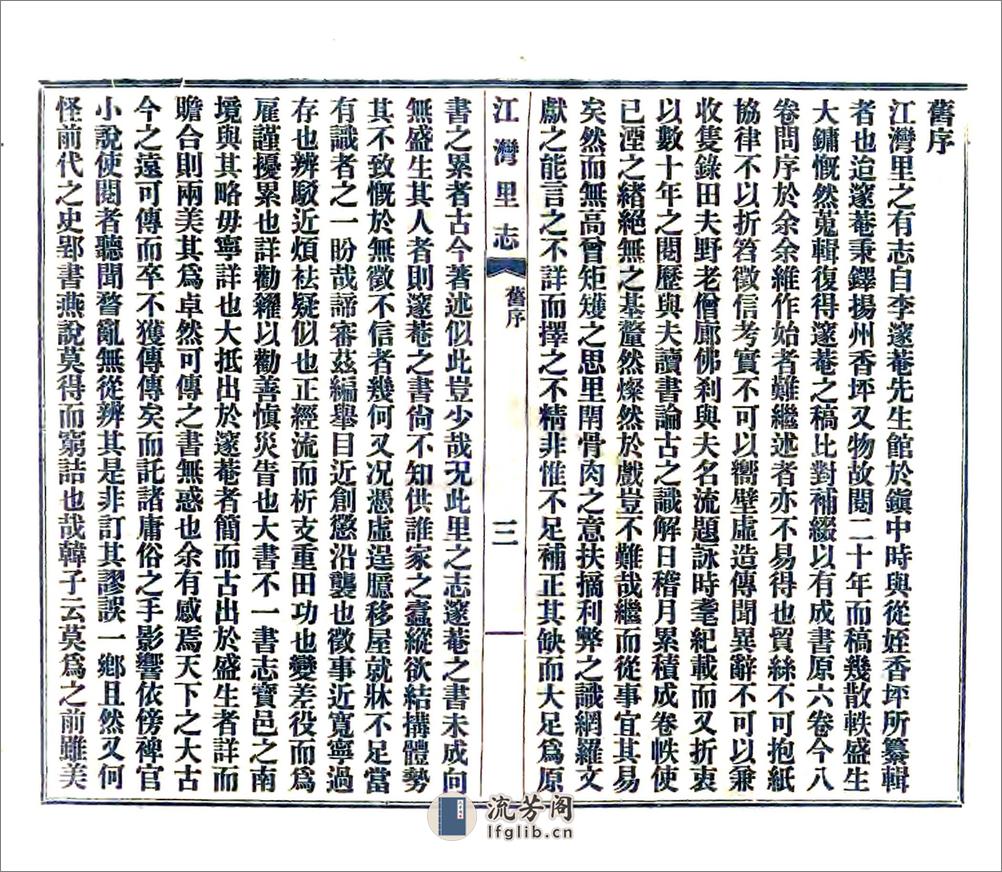 舊序
江灣里之有志自李邃菴先生館於鎭中時與從姪香坪所纂輯
者也迨邃菴秉鐸揚州香坪又物故閱二十年而稿幾散軼盛生
大鏞慨然蒐輯復得邃菴之稿比對補綴以有成書原六卷今八
卷問序於余余維作始者難繼述者亦不易得也貿絲不可抱紙
協律不以折笞徵信考實不可以嚮壁虛造傳聞異辭不可以兼
收隻錄田夫野老僧廊佛刹與夫名流題詠時耄紀載而又折衷
以數十年之閱歷與夫讀書論古之識解日稽月累積成卷帙使
已湮之緒絕無之基釐然燦然於戲豈不難哉繼而從事宜其易
矣然而無高曾矩矱之思里閈骨肉之意扶摘利弊之識網羅文
獻之能言之不詳而擇之不精非惟不足補正其缺而大足爲原
江灣里志
舊序
三
書之累者古今著述似此豈少哉況此里之志邃菴之書未成向
無盛生其人者則邃菴之書尙不知供誰家之蠹縱欲結搆體勢
其不致慨於無徵不信者幾何又况憑虛逞臆移屋就牀不足當
有識者之一盼哉諦審茲編舉目近創懲沿襲也徵事近寬寧過
存也辨駁近煩袪疑似也正經流而析支重田功也變差役而爲
雇謹擾累也詳勸糴以勸善愼災眚也大書不一書志寶邑之南
境與其略毋寧詳也大抵出於邃菴者簡而古出於盛生者詳而
贍合則兩美其爲卓然可傳之書無惑也余有感焉天下之大古
今之遠可傳而卒不獲傳傳矣而託諸庸俗之手影響依傍稗官
小說使閱者聽聞瞀亂無從辨其是非訂其謬誤一鄉且然又何
怪前代之史郢書燕說莫得而窮詰也哉韓子云莫爲之前雖美
流芳阁
lfglib.cn